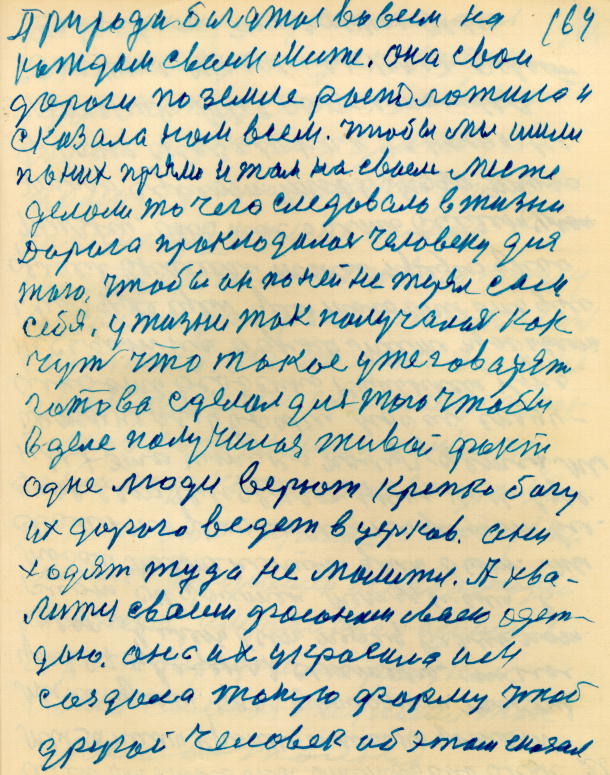 Природи богатои вовсем на 164
каждом своем мите. она свои
дороги по земле росположила и
сказала ном всем. чтобы мы шли
по них прямо и там на своем месте
делоли то чего следовало в жизни
Дорога прокладалоя человеку для
того, чтобы он по ней не терял сам
себя, у жизни ток получалоя как
чут что токое уже говарят
готова сделал для того чтобы
в деле получилоя живой факт
одне люди верют крепко богу
их дорого ведет в церков. они
ходят туда не молити. А хва-
лити своим фасоном своею одеж-
дою. она их украсила им
создала токую форму чтоб
другой человек об этом сказал